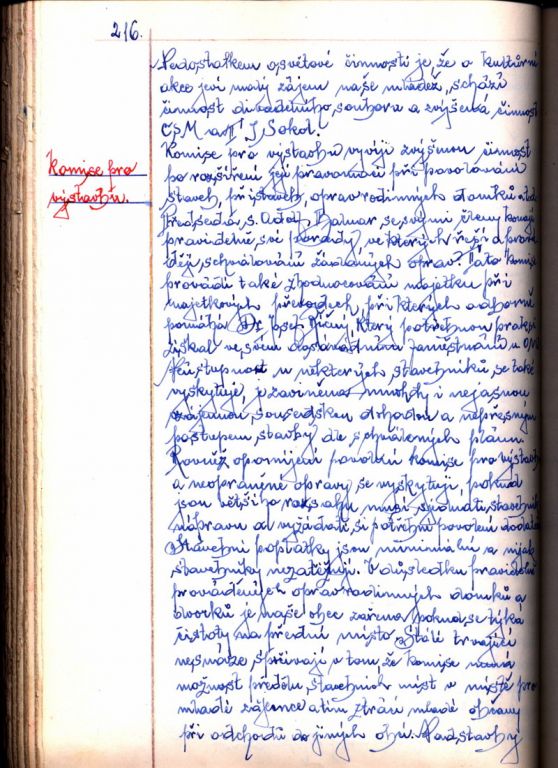 216.
Nedostatkem osvětové činnosti je, že o kulturní
akce jeví malý zájem naše mládež, schází
činnost divadelního souboru a zvýšená činnost
ČSM a TJ Sokol.
Komise pro
výstavbu.
Komise pro výstavbu vyvíjí zvýšenou činnost
po rozšíření její pravomoci při povolování
staveb, přístaveb, oprav rodinných domků atd.
Předseda, s. Ant. se svými členy konají
pravidelné své porady, ve kterých řeší a
schvalování žádaných oprav. Tato komise
provádí také zhodnocování majetku při
majetkových převodech, při kterých odborně
pomáhá Dr. Josef který potřebnou praksi
získal ve svém dosavadním zaměstnání u
Neústupnost u některých stavebníků se také
vyskytuje, je zaviněna mnohdy i nejasnou
vzájemnou sousedskou dohodou a nepřesným
postupem stavby dle schválených plánů.
Rovněž opomíjení povolení komise pro výstavbu
a neoprávněné opravy se vyskytují, pokud
jsou většího rozsahu, musí zjednati stavebník
nápravu a vyžádati si potřebné povolení dodatečně.
Stavební poplatky jsou minimální a nijak
stavebníky nezatěžují. V důsledku pravidelně
prováděných oprav rodinných domků a
dvorků je naše obec zařazena pokud se týká
čistoty na přední místo. Stálé trvající
nesnáze spočívají v tom, že komise nemá
možnost přídělu stavebních míst v místě pro
mladé zájemce a tím ztrácí mladé občany
při odchodu do jiných obcí. Nadstavby